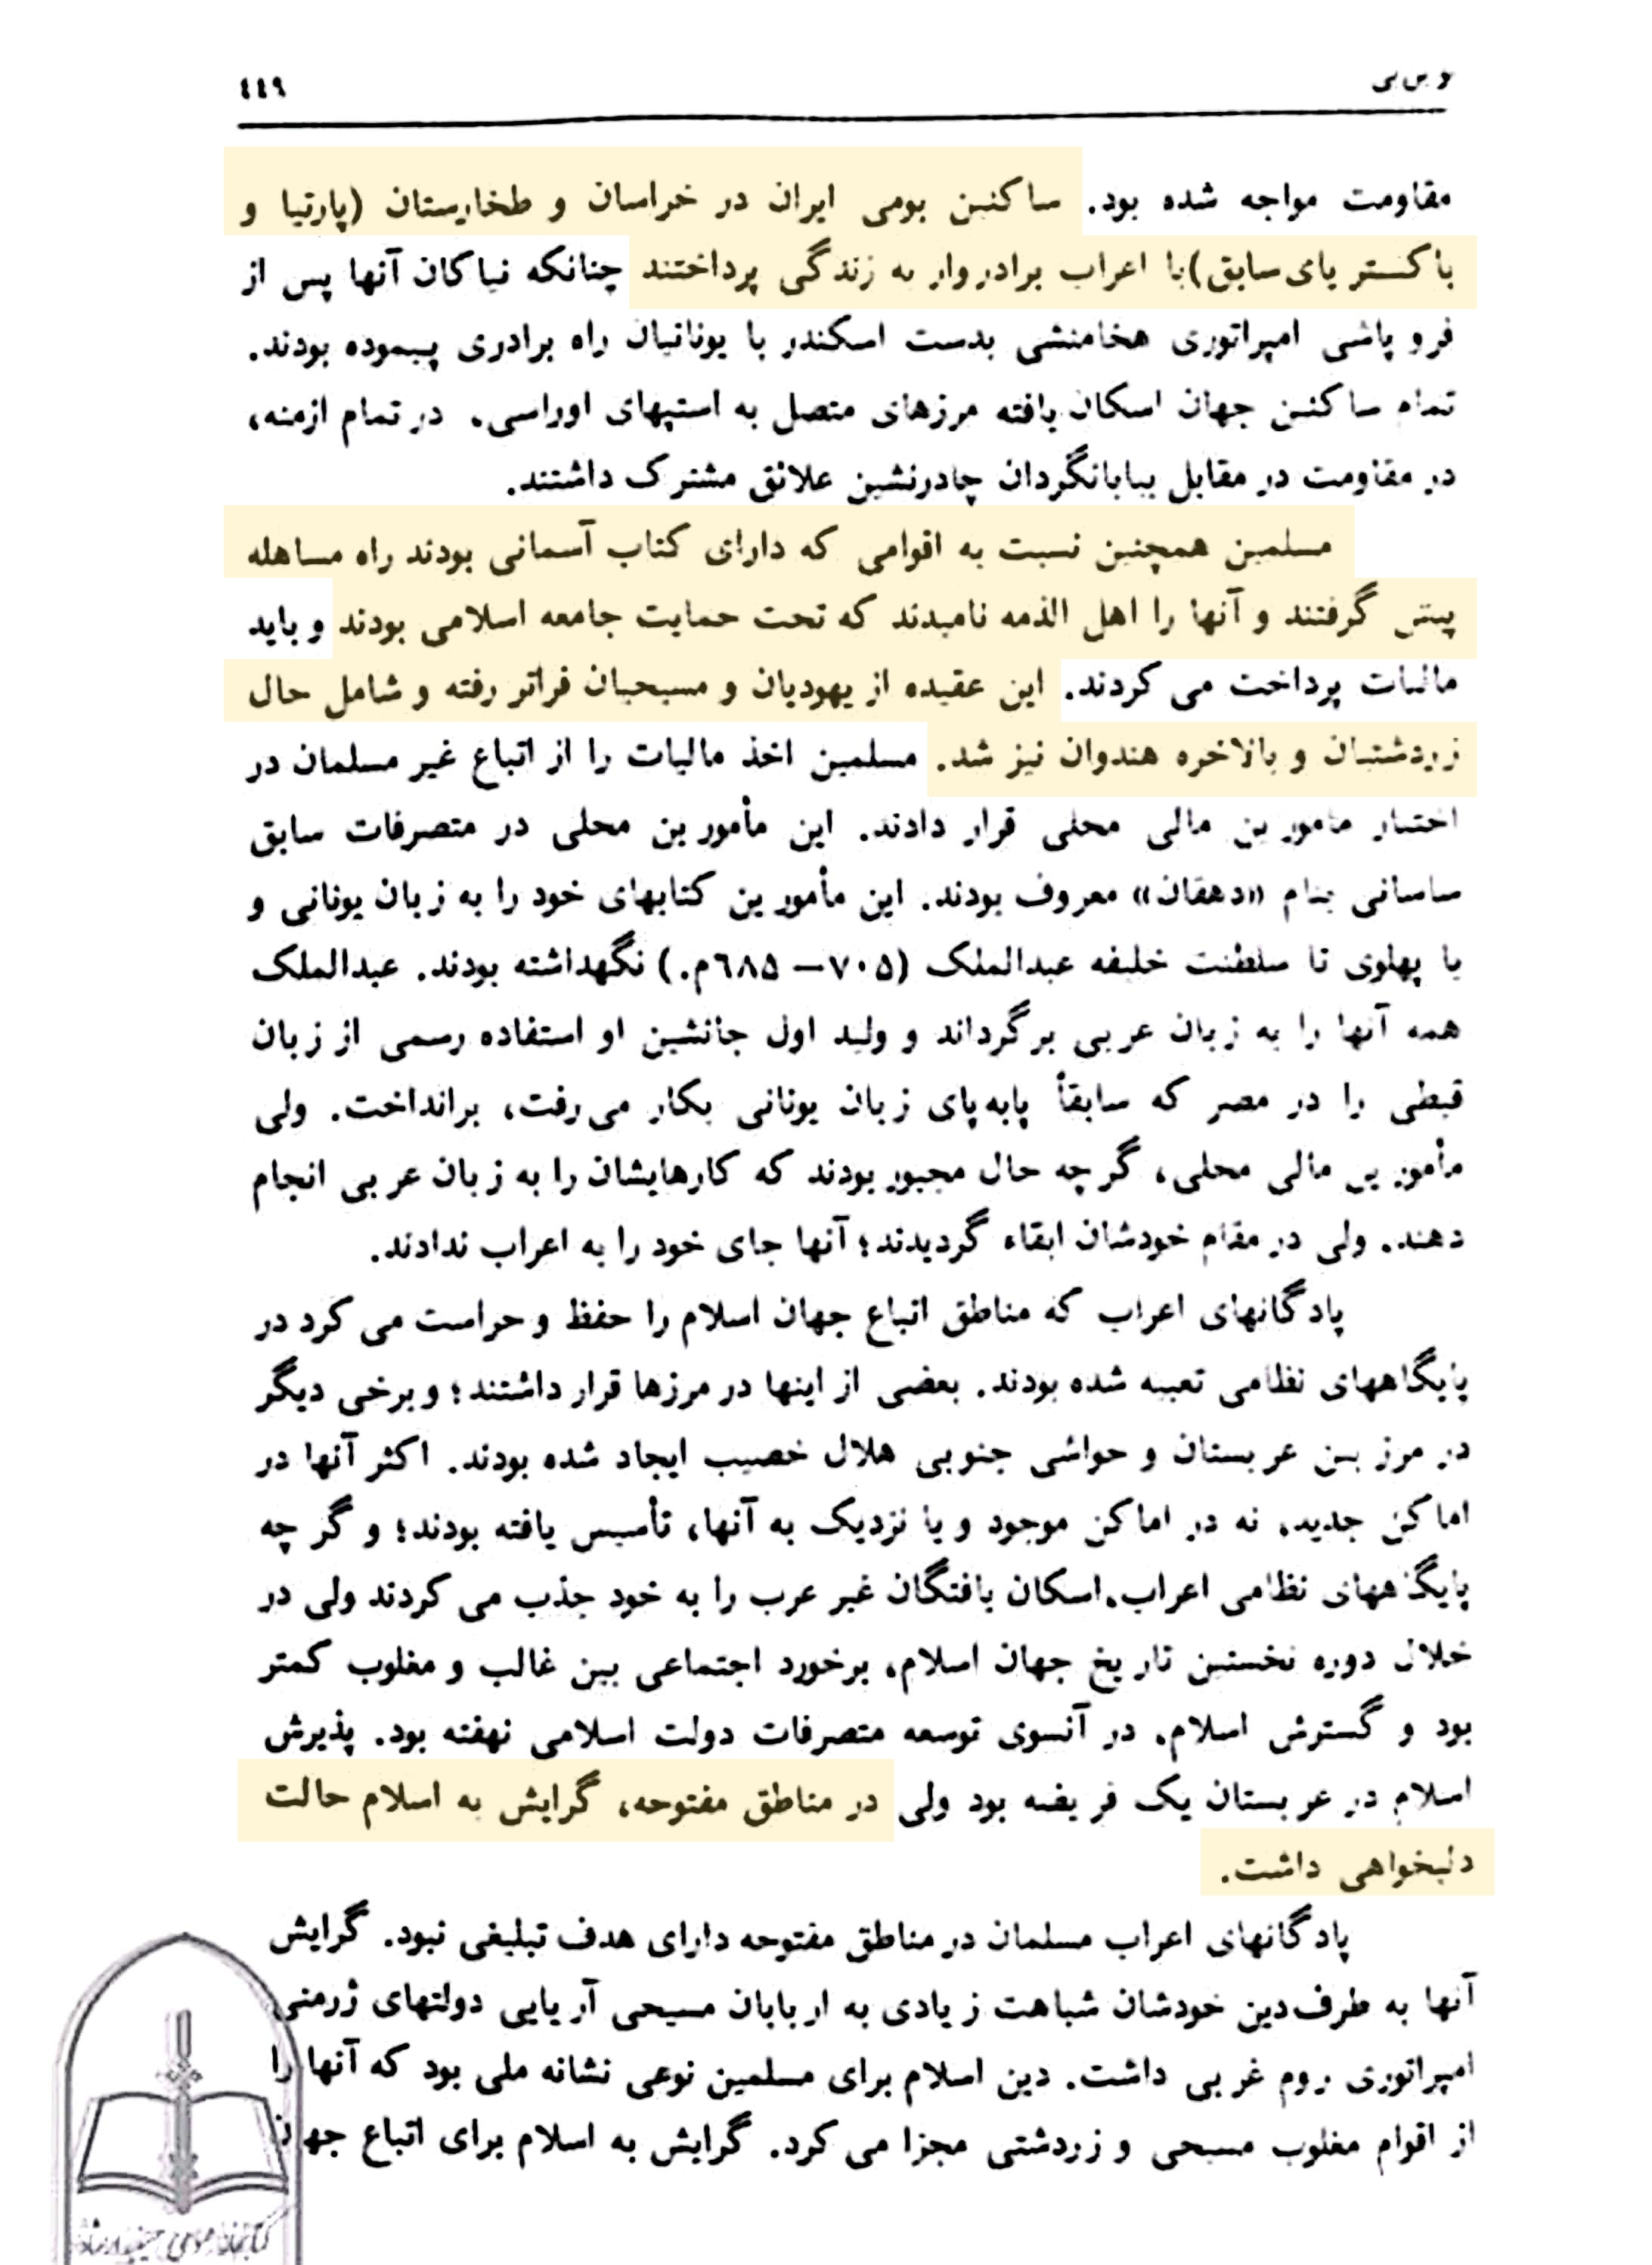 ٤٤٩
مقاومت مواجه شده بود. ساکنین بومی ایران در خراسان و طخارستان (پارتیا و
باکستریای سابق) با اعراب برادروار به زندگی پرداختند چنانکه نیاکان آنها پس از
فرو پاشی امپراتوری هخامنشی بدست اسکندر با یونانیان راه برادری پیموده بودند.
تمام ساکنین جهان اسکان یافته مرزهای متصل به استپهای اوراسی، در تمام ازمنه،
در مقاومت در مقابل بیابانگردان چادرنشین علائق مشترک داشتند.
مسلمین همچنین نسبت به اقوامی که دارای کتاب آسمانی بودند راه مساهله
پیش گرفتند و آنها را اهل الذمه نامیدند که تحت حمایت جامعه اسلامی بودند و باید
مالیات پرداخت می کردند. این عقیده از یهودیان و مسیحیان فراتر رفته و شامل حال
زردشتیان و بالاخره هندوان نیز شد. مسلمین اخذ مالیات را از اتباع غیر مسلمان در
اختیار مامورین مالی محلی قرار دادند. این مأمورین محلی در متصرفات سابق
ساسانی بنام «دهقان» معروف بودند. این مأمورین کتابهای خود را به زبان یونانی و
یا پهلوی تا سلطنت خلیفه عبدالملک (۷۰۵ – ٦۸۵م.) نگهداشته بودند. عبدالملک
همه آنها را به زبان عربی برگرداند و ولید اول جانشین او استفاده رسمی از زبان
قبطی را در مصر که سابقاً پابه‌پای زبان یونانی بکار می‌رفت، برانداخت. ولی
مأمورین مالی محلی، گرچه حال مجبور بودند که کارهایشان را به زبان عربی انجام
دهند. ولی در مقام خودشان ابقاء گردیدند؛ آنها جای خود را به اعراب ندادند.
پادگانهای اعراب که مناطق اتباع جهان اسلام را حفظ و حراست می کرد در
پایگاههای نظامی تعبیه شده بودند. بعضی از اینها در مرزها قرار داشتند؛ و برخی دیگر
در مرز بین عربستان و حواشی جنوبی هلال خصیب ایجاد شده بودند. اکثر آنها در
اماکن جدید، نه در اماکن موجود و یا نزدیک به آنها، تأسیس یافته بودند؛ و گر چه
پایگاههای نظامی اعراب، اسکان یافتگان غیر عرب را به خود جذب می کردند ولی در
خلال دوره نخستین تاریخ جهان اسلام، برخورد اجتماعی بین غالب و مغلوب کمتر
بود و گسترش اسلام، در آنسوی توسعه متصرفات دولت اسلامی نهفته بود. پذیرش
اسلام در عربستان یک فریضه بود ولی در مناطق مفتوحه، گرایش به اسلام حالت
دلبخواهی داشت.
پادگانهای اعراب مسلمان در مناطق مفتوحه دارای هدف تبلیغی نبود. گرایش
آنها به طرف دین خودشان شباهت زیادی به اربابان مسیحی آریایی دولتهای ژرمنی
امپراتوری روم غربی داشت. دین اسلام برای مسلمین نوعی نشانه ملی بود که آنها را
از اقوام مغلوب مسیحی و زردشتی مجزا می کرد. گرایش به اسلام برای اتباع جهان